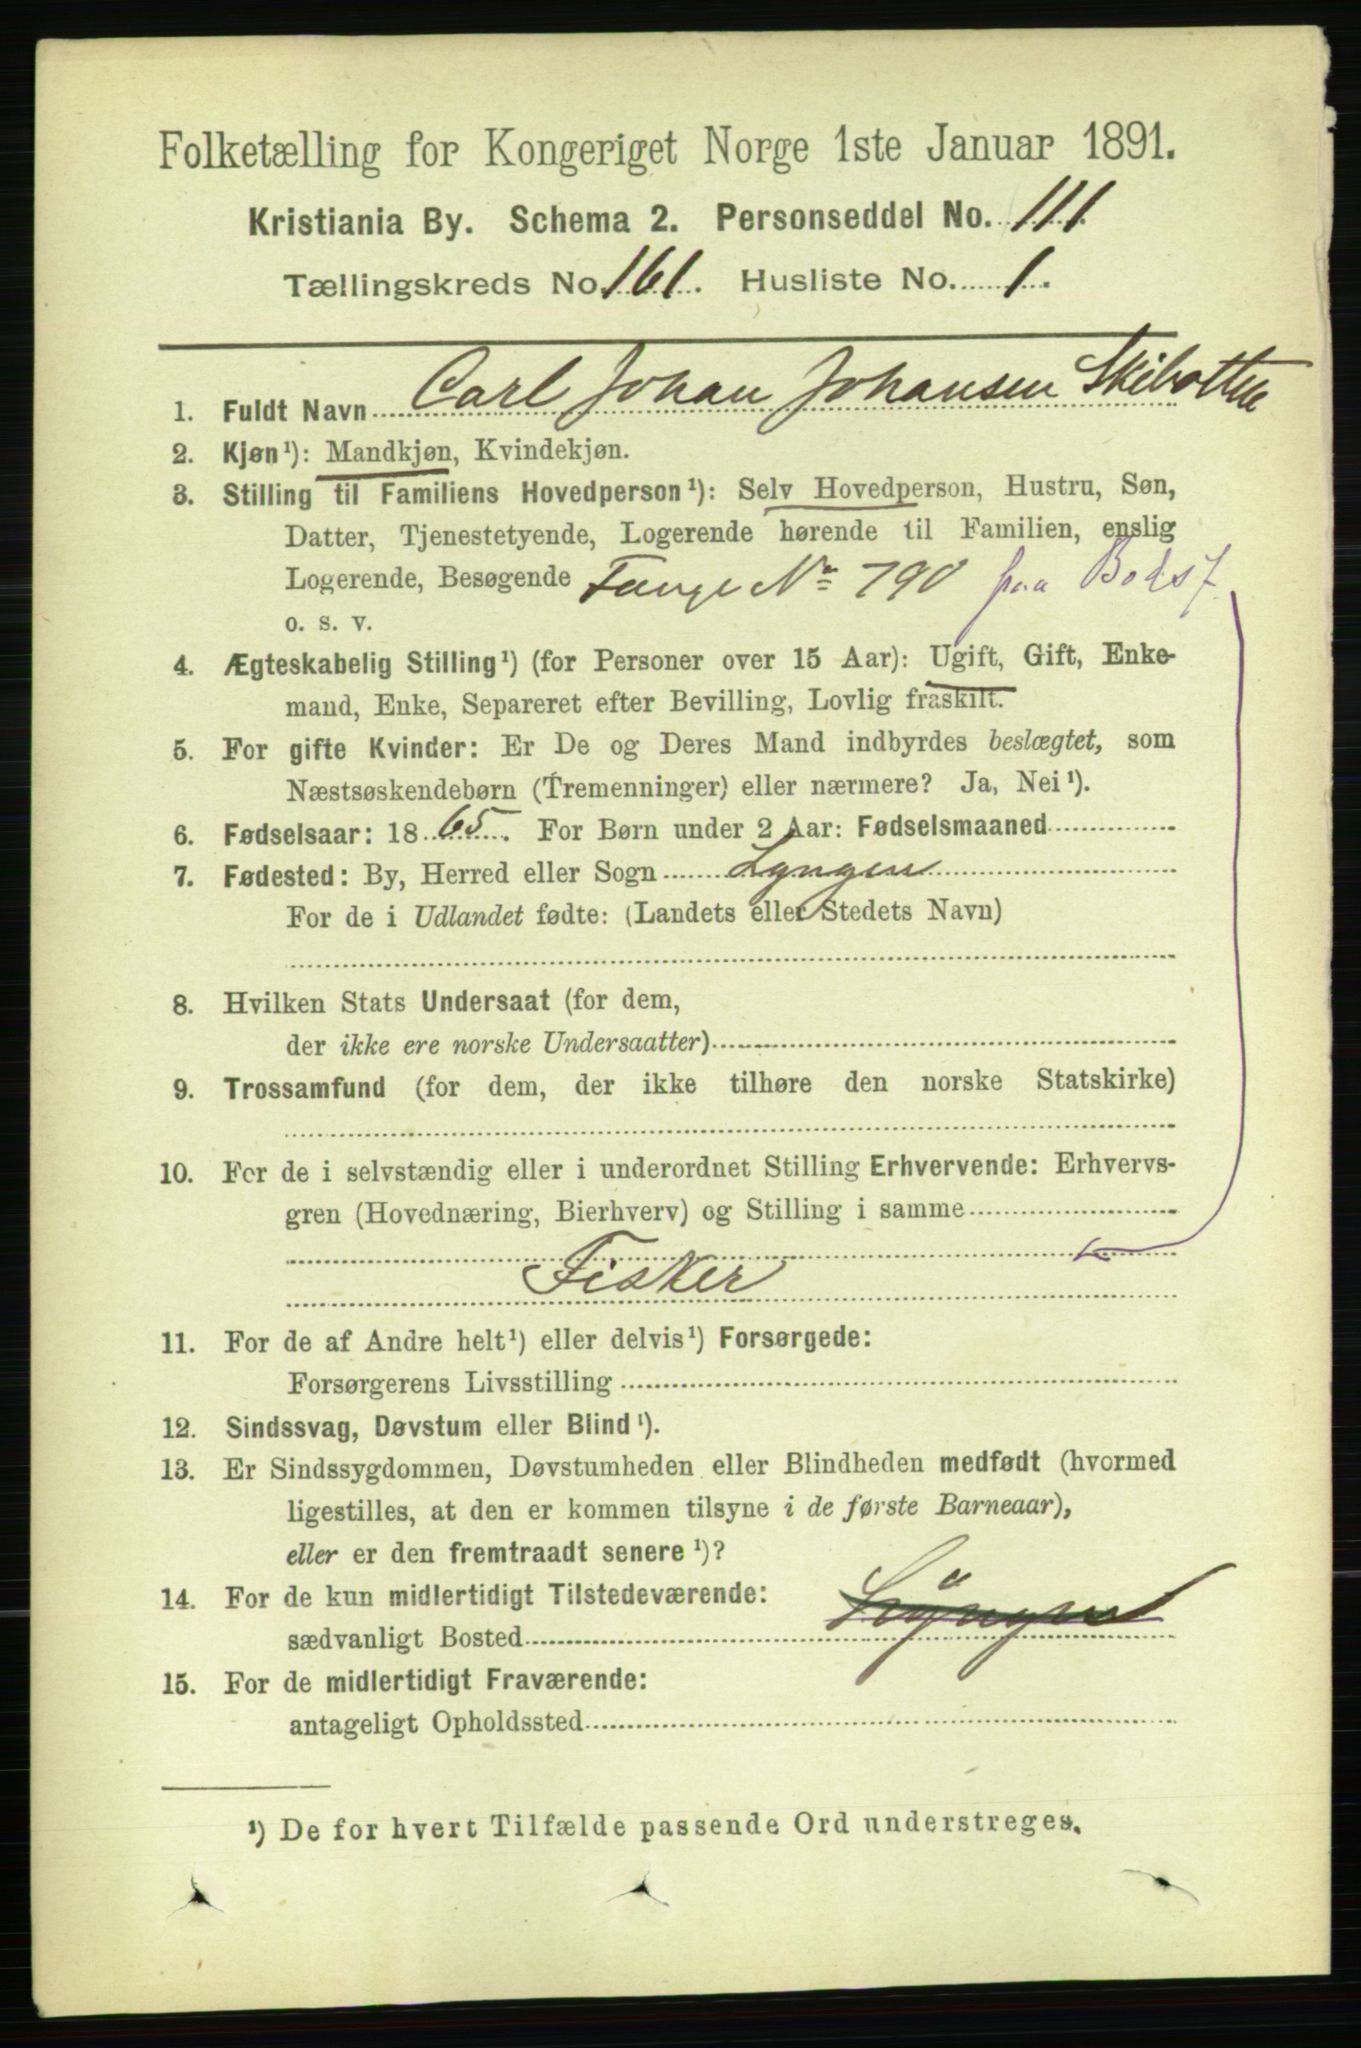 Folketælling for Kongeriget Norge 1ste Januar 1891.
Kristiania By. Schema 2. Personseddel No. 111
Tællingskreds No. 161. Husliste No. 1.
1. Fuldt Navn Carl Johan Johansen Skibotten
2. Kjøn¹): Mandkjøn, Kvindekjøn.
3. Stilling til Familiens Hovedperson¹): Selv Hovedperson, Hustru, Søn,
Datter, Tjenestetyende, Logerende hørende til Familien, enslig
Logerende, Besøgende Fange No 790 paa Bodsf
o. s. v.
4. Ægteskabelig Stilling¹) (for Personer over 15 Aar): Ugift, Gift, Enke-
mand, Enke, Separeret efter Bevilling, Lovlig fraskilt.
5. For gifte Kvinder: Er De og Deres Mand indbyrdes beslægtet, som
Næstsøskendebørn (Tremenninger) eller nærmere? Ja, Nei¹).
6. Fødselsaar: 1865. For Børn under 2 Aar: Fødselsmaaned
7. Fødested: By, Herred eller Sogn Lyngen
For de i Udlandet fødte: (Landets eller Stedets Navn)
8. Hvilken Stats Undersaat (for dem,
der ikke ere norske Undersaatter)
9. Trossamfund (for dem, der ikke tilhøre den norske Statskirke)
10. For de i selvstændig eller i underordnet Stilling Erhvervende: Erhvervs-
gren (Hovednæring, Bierhverv) og Stilling i samme
Fisker
11. For de af Andre helt¹) eller delvis¹) Forsørgede:
Forsørgerens Livsstilling
12. Sindssvag, Døvstum eller Blind¹).
13. Er Sindssygdommen, Døvstumheden eller Blindheden medfødt (hvormed
ligestilles, at den er kommen tilsyne i de første Barneaar),
eller er den fremtraadt senere¹)?
14. For de kun midlertidigt Tilstedeværende:
sædvanligt Bosted Lyngen
15. For de midlertidigt Fraværende:
antageligt Opholdssted
¹) De for hvert Tilfælde passende Ord understreges.